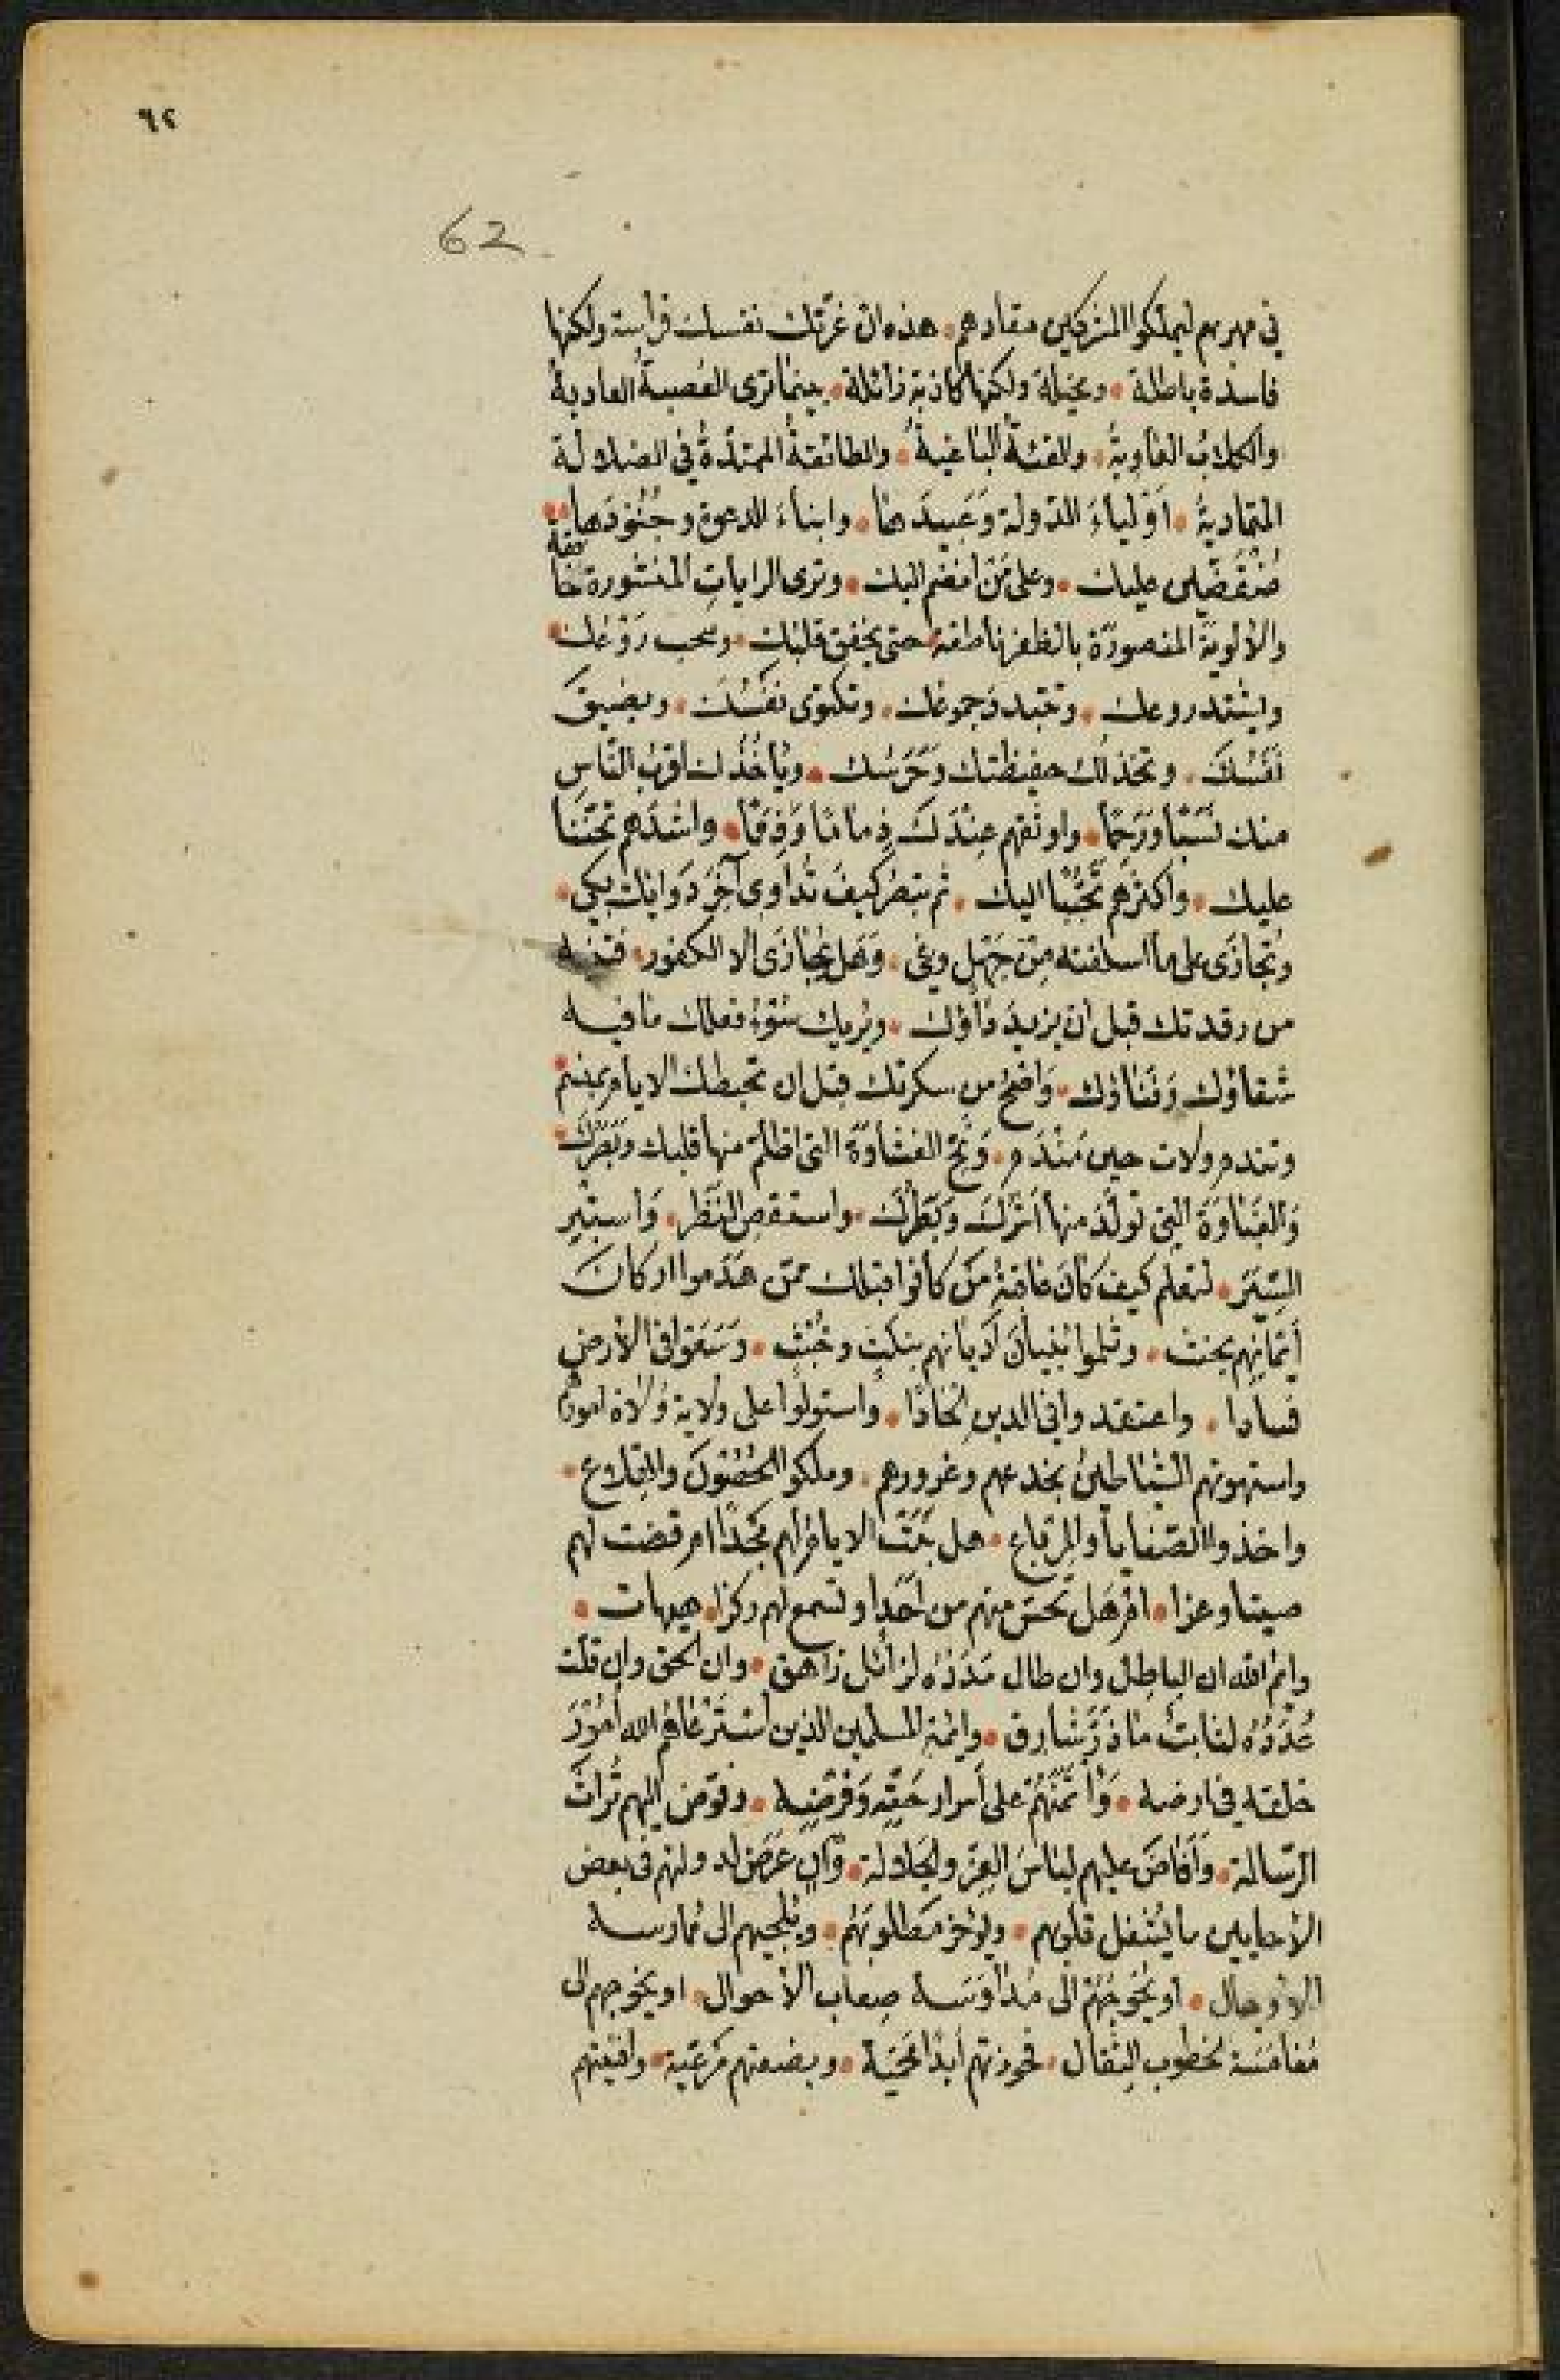 ٦٢
62
في مهربهم ليملكوا المشركين مقادهم • هذه ان غرتك نفسك فراسة ولكنها
فاسدة باطلة • ومخيلة ولكنها كاذبة زائلة • بينما ترى العُصبةُ العاديةُ
والكلابُ العاويةُ • والفئةُ الباغيةُ • والطائفةُ الممتدّةُ في الضلالة
المتماديةُ • أوْلياءَ الدّولة وَعَبيدَها • وابناءَ الدعوة وجُنُودَها •
مُنْقَضّين عليك • وعلى مَن انضم اليك • وترى الراياتِ المنشورة خافقة
والالوية المنصورة بالظفر ناطقة • حتى يخفق قلبُك • رَوْعك •
ويشتد روعك • وتتبدد جموعك • وتكتوى نَفْسُكَ • ويضيقَ
نَفَسُكَ • وتخذلك حفيظتك وَحَرَسُك • ويأخُذُك اقربُ النّاسِ
منك نَسَبًا وَرَحِمًا • واوثقهم عِنْدَكَ ذِمامًا وَذِممًا • واشدهم تحنّنًا
عليك • واكثرهم تحبُّبًا اليك • ثم تبصر كيفَ تُداوى آخِرَ دَوائك بكي •
وتُجازَى على ما اسلفته مِنْ جَهْلٍ وغي • وَهَل يُجازَى الا الكفور • فتنبه
من رقدتك قبل ان يزيدَ داؤك • ويُريك سُوءُ فعلك ما فيه
شقاؤك وَفَناؤك • وَاصْحُ من سكرتك قبل ان تخبطك الايام بمنسم
وتندم ولات حين مَنْدَم • وَنَحِّ الغشاوَةَ التى اظلم منها قلبك وَبَصَرُكَ •
وَالغَباوَةَ التى تولّدَ منها أشَرُكَ وَبَطَرُكَ • واستقصِ النَّظَر • وَاسبُرِ
السِّيَر • لتعلم كيفَ كانَ عاقبةُ مَن كانوا قبلك ممّن هَدَموا اركانَ
أيْمانِهِم بحنث • وثلموا بُنيانَ أديانهم بنكثٍ وخُبْثٍ • وَسَعَوا في الأرضِ
فسادا • واعتقدوا في الدين إلحادًا • واستولَوا على ولاية وُلاة
واستهوتهم الشياطينُ بخدعهم وغرورهم • وملكوا الحُصُونَ والقِلاع •
واخذوا الصّفايا والمِرباع • هل بَنَت الايام لهم مَجْدًا ام قضت لهم
صيتا وعزا • ام هَل تُحسّ منهم من أحَدٍ او تسمع لهم رِكزا • هيهات •
وايم الله ان الباطلَ وان طال مَدَدُهُ لزائل زاهق • وان الحق وان قلّت
عُدَدُهُ لثابتٌ ما ذَرَّ شارق • وائمة المسلمين الذين استَرْعاهُم الله أمُوْرَ
خلقه في ارضه • وَأْتَمَنَهُمْ على أسرار حَقّه وَفَرْضِه • وفوّض اليهم تُراثَ
الرّسالة • وَأفاضَ عليهم لباسَ العِزّ والجَلالة • وَان عَرَضَ لدولتهم في بعض
الأحايين ما يُشْغل قلوبهم • ويؤخر مَطلوبَهُم • ويُلجيهم الى مُمارسة
الاوجال • او يُحوِجهُم الى مُداوَسة صِعاب الأحوال • او يخرجهم الى
مُغامَسَة الخطوب الثِّقال • فحوزتهم أبدًا مَحْميّة • وبضعتهم مَرعيّة • وافئيتهم